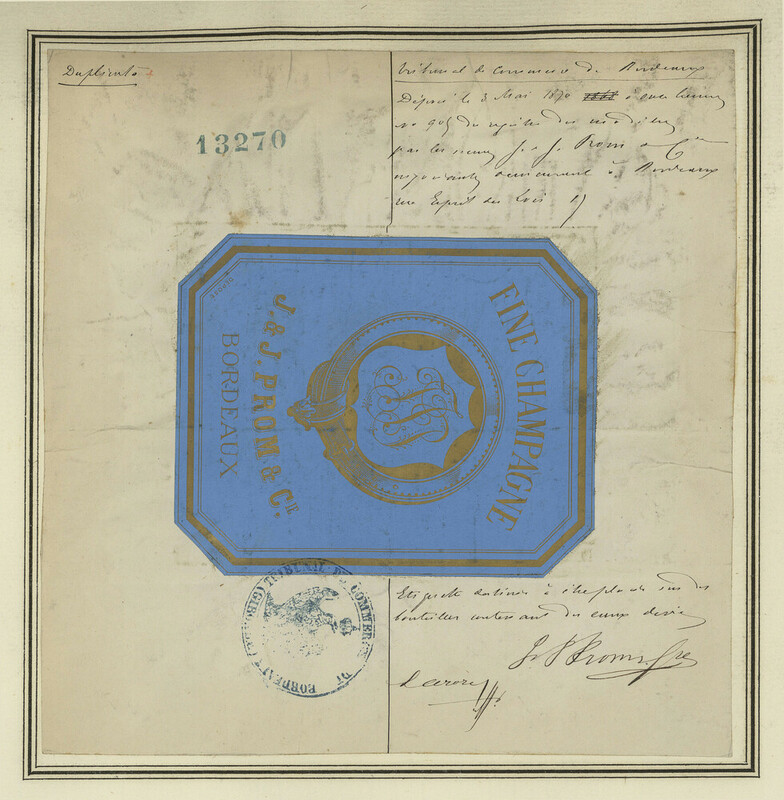 Duplicata
13270
Tribunal de Commerce de Bordeaux
Déposé le 3 Mai 1870
no 905 du registre des
par les sieurs J. & J. Prom & Cie
négociants demeurant à Bordeaux
rue Esprit des Lois
FINE CHAMPAGNE
J. & J. PROM & CIE.
BORDEAUX
Etiquette destinée à être placée sur des
bouteilles contenant des eaux de vie
J & J Prom & Cie
TRIBUNAL DE COMMERCE DE BORDEAUX (GIRONDE)